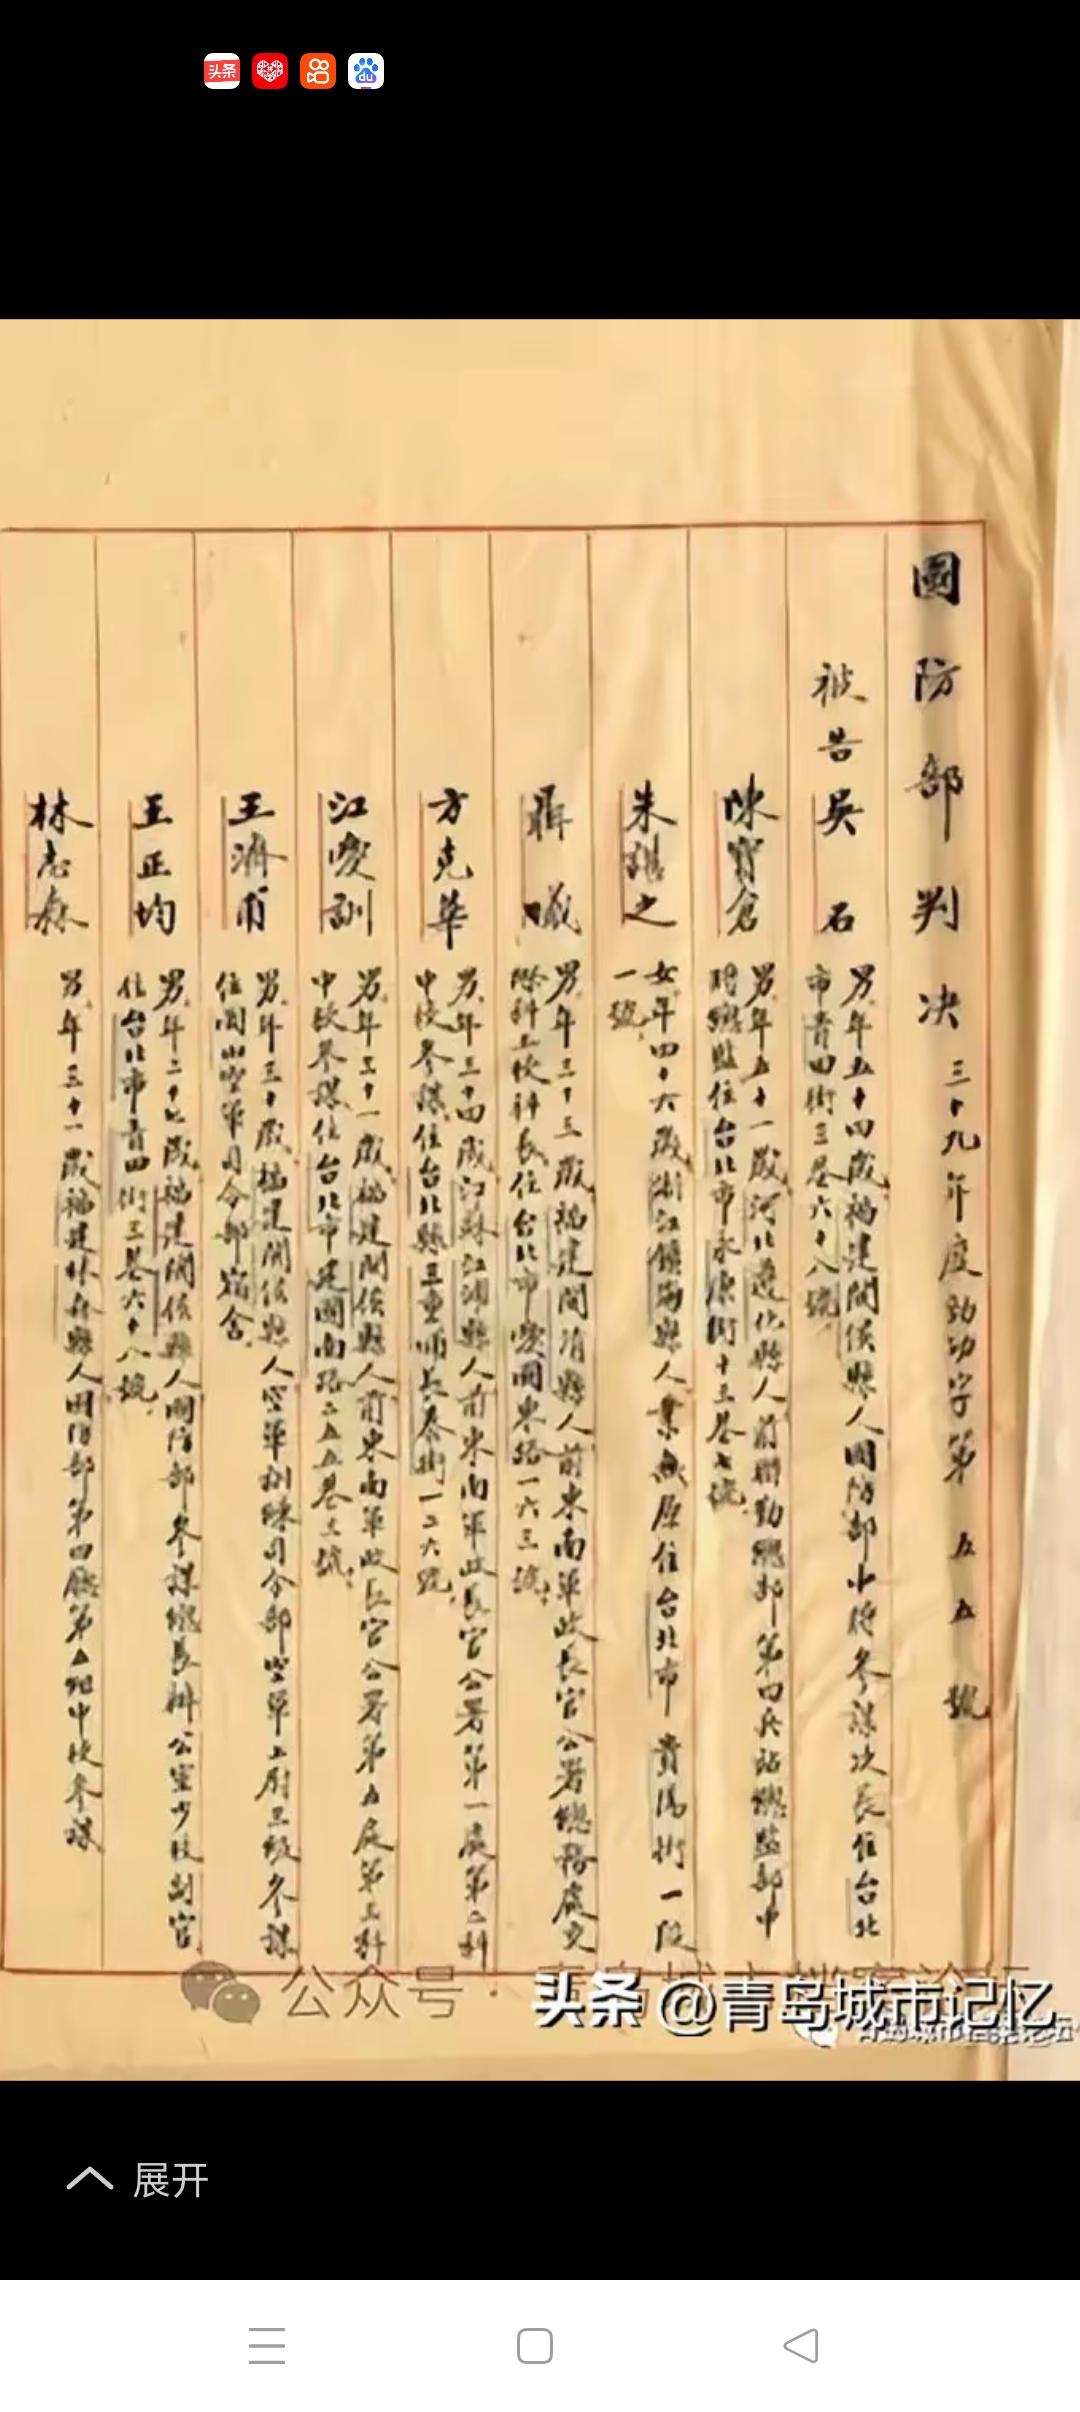 头条
du
國防部判決 三十九年度勁功字第五五號
被告 吳石 男年五十四歲福建閩侯縣人國防部中將參謀次長住台北
市青田街三巷六十八號
陳寶倉 男年五十一歲河北遵化縣人前聯勤總部第四兵站總監部中
將總監住台北市永康街十三巷七號
朱諶之 女年四十六歲浙江鎮海縣人業無原住台北市貴陽街一段
一號
聶曦 男年三十三歲福建閩清縣人前東南軍政長官公署總務處交
際科上校科長住台北市愛國東路一六三號
方克華 男年三十四歲江蘇江浦縣人前東南軍政長官公署第一處第二科
中校參謀住台北縣三重埔長泰街一二六號
江愛訓 男年三十一歲福建閩侯縣人前東南軍政長官公署第九處第三科
中校參謀住台北市建國南路二五五巷三號
王濟甫 男年三十歲福建閩侯縣人空軍訓練司令部空軍上尉三級參謀
住岡山空軍司令部宿舍
王正均 男年二十七歲福建閩侯縣人國防部參謀總長辦公室少校副官
住台北市青田街三巷六十八號
林志森 男年三十一歲福建林森縣人國防部第四廳第組中校參謀
公众号·
头条 @青岛城市记忆
展开